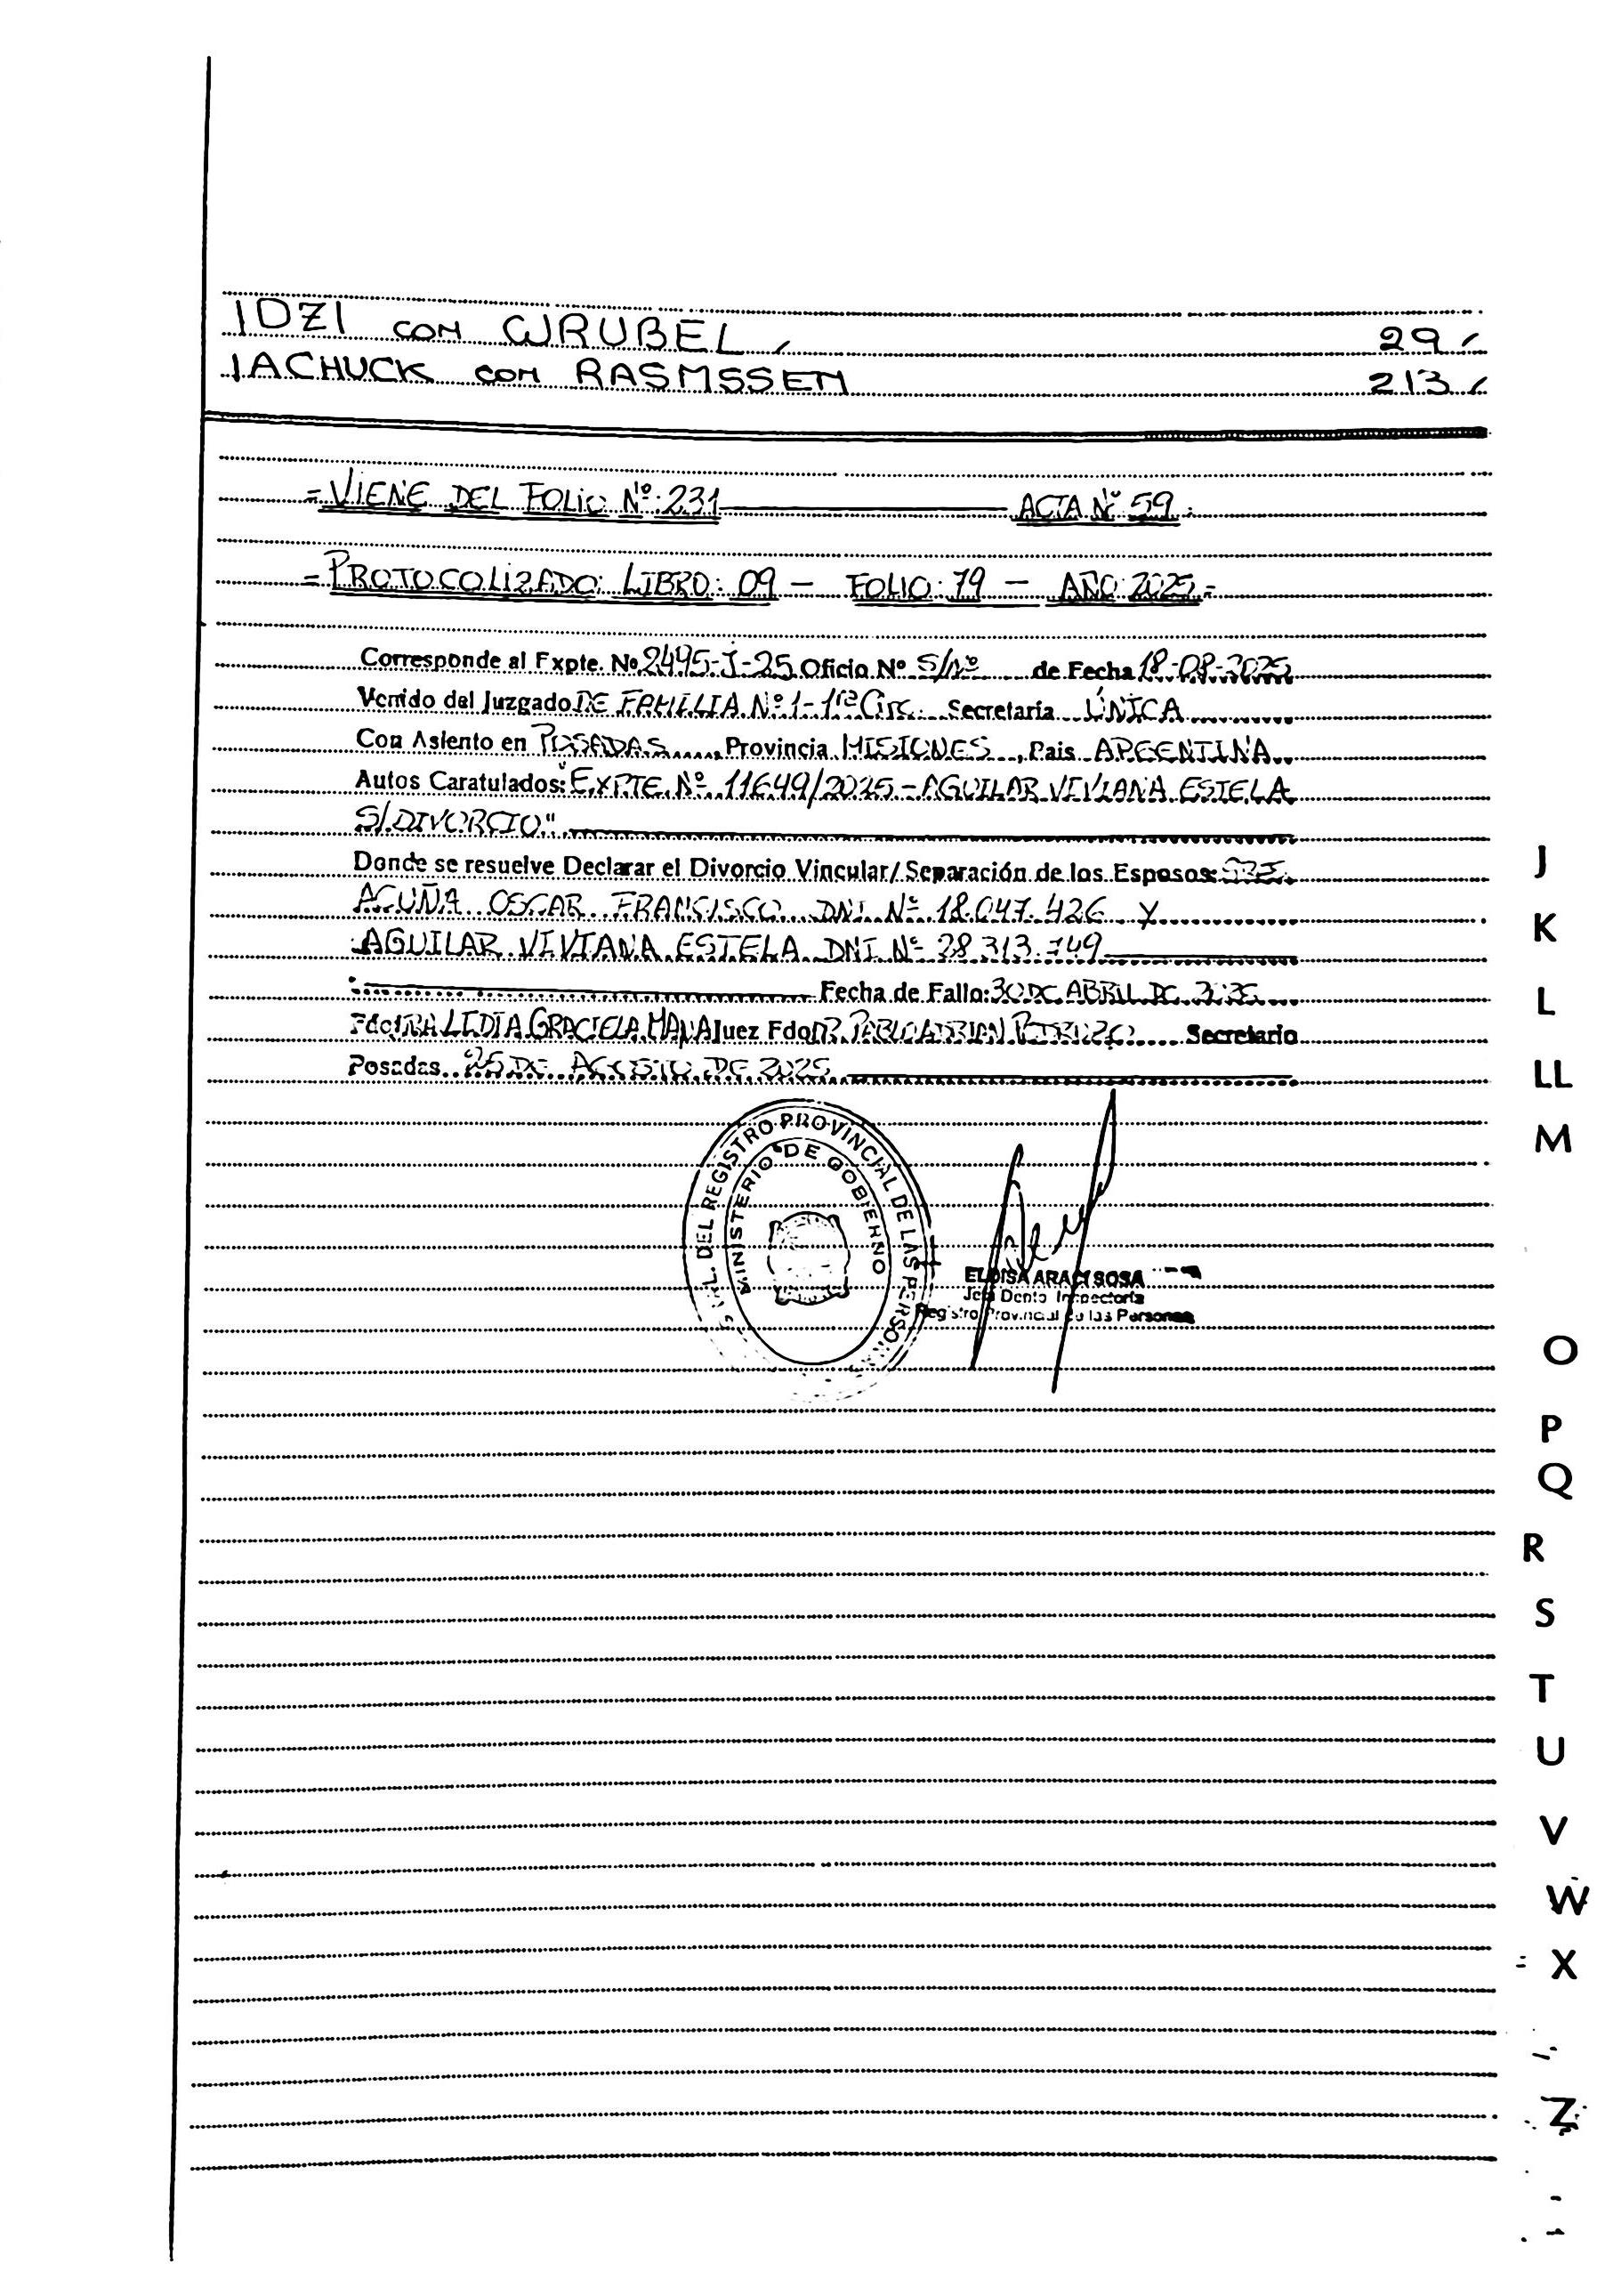 IDZI con WRUBEL 29
IACHUCK con RASMSSEN 213
= VIENE DEL FOLIO Nº: 231 ACTA Nº 59.
= PROTOCOLIZADO: LIBRO: 09 - FOLIO: 79 - AÑO 2025.=
Corresponde al Expte. Nº 2495-J-25 Oficio Nº S/Nº de Fecha 18-08-2025
Venido del Juzgado DE FAMILIA Nº 1 - 1ra Circ. Secretaría ÚNICA
Con Asiento en POSADAS, Provincia MISIONES, Pais ARGENTINA
Autos Caratulados: "EXPTE. Nº 11649/2025 - AGUILAR VIVIANA ESTELA
S/DIVORCIO"
Donde se resuelve Declarar el Divorcio Vincular/Separación de los Esposos:
ACUÑA OSCAR FRANCISCO DNI Nº 18.047.426 Y
AGUILAR VIVIANA ESTELA DNI Nº 28.313.749
Fecha de Fallo: 30 DE ABRIL DE 2025
Fdo: DRA LIDIA GRACIELA Juez Fdo: DR PABLO ADRIAN Secretario
Posadas 25 DE AGOSTO DE 2025
DEL REGISTRO PROVINCIAL DE LAS PERSONAS
MINISTERIO DE GOBIERNO
ELOISA ARACI SOSA
Jefa Dpnto Inspectoria
Registro Provincial de las Personas
J
K
L
LL
M
O
P
Q
R
S
T
U
V
W
X
Z